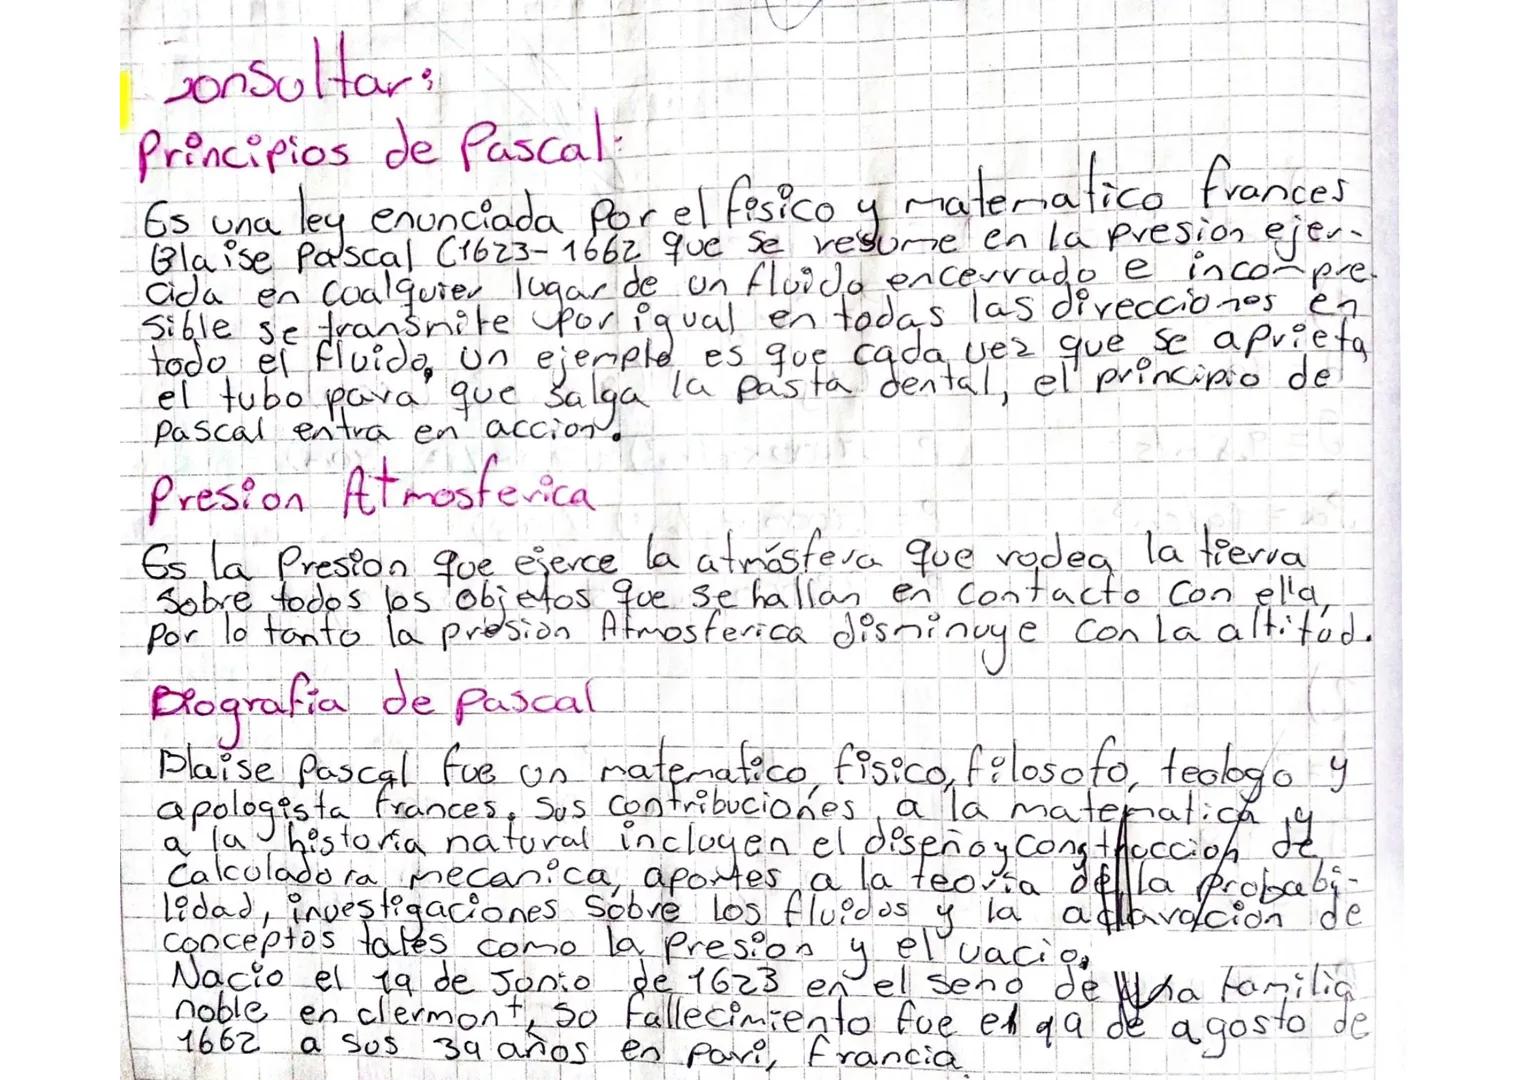 Consultar:
Principios de Pascal:
Es una ley enunciada por el fisico y matematico frances
Blaise Pascal (1623-1662 que se resume en la presion ejer-
cida en cualquier lugar de un fluido encerrado e incompre-
sible se transmite por igual en todas las direcciones en
todo el fluido, un ejemplo es que cada vez que se aprieta
el tubo para que salga la pasta dental, el principio de
pascal entra en accion.
Presion Atmosferica
Es la Presion que ejerce la atmósfera que rodea la tierra
Sobre todos los objetos que se hallan en contacto con ella,
por lo tanto la presion Atmosferica disminuye con la altitud.
Biografia de pascal
Blaise Pascal fue un matematico, fisico, filosofo, teologo y
apologista frances. Sus contribuciones a la matematica y
a la historia natural incluyen el diseño y construccion de
calculadora mecanica, aportes a la teoria de la probabi-
lidad, investigaciones sobre los fluidos y la aclaracion de
conceptos tales como la Presion y el vacio.
Nacio el 19 de Junio de 1623 en el seno de una familia
noble en clermont, su fallecimiento fue el 19 de agosto de
1662 a sus 39 años en pari, francia